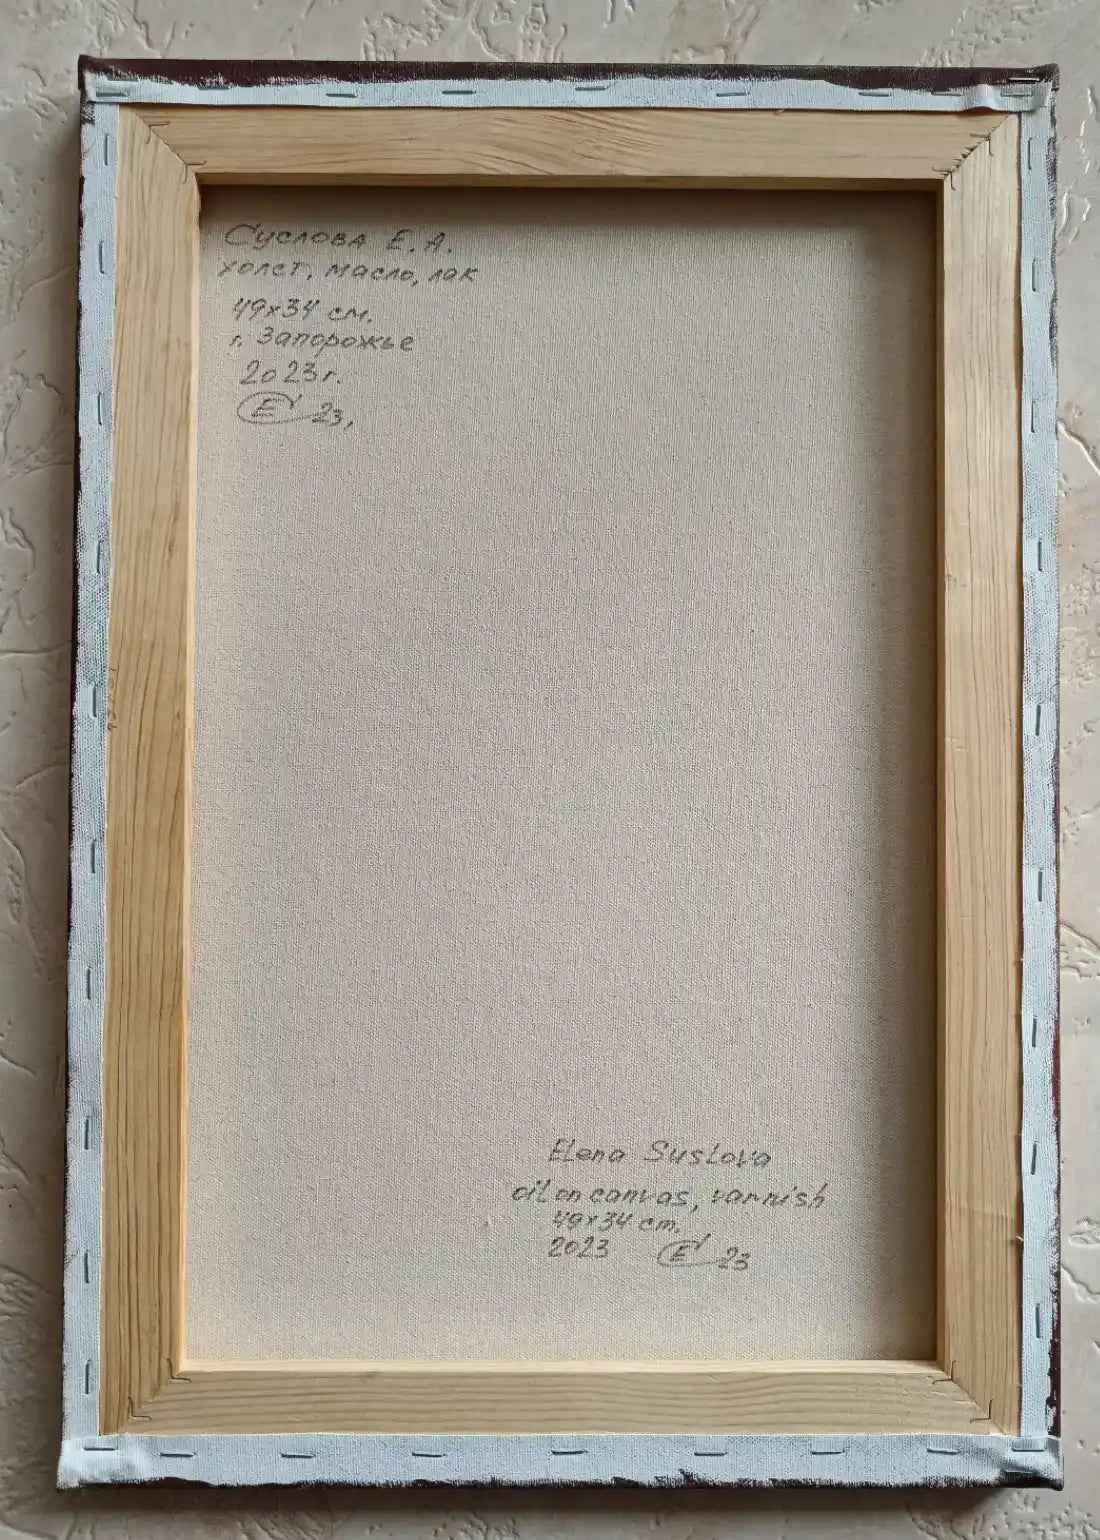 Суслова Е. А.
холст, масло, лак
49х34 см.
г. Запорожье
2023г.
Е 23,
Elena Suslova
oil on canvas, varnish
49x34 cm.
2023 E 23